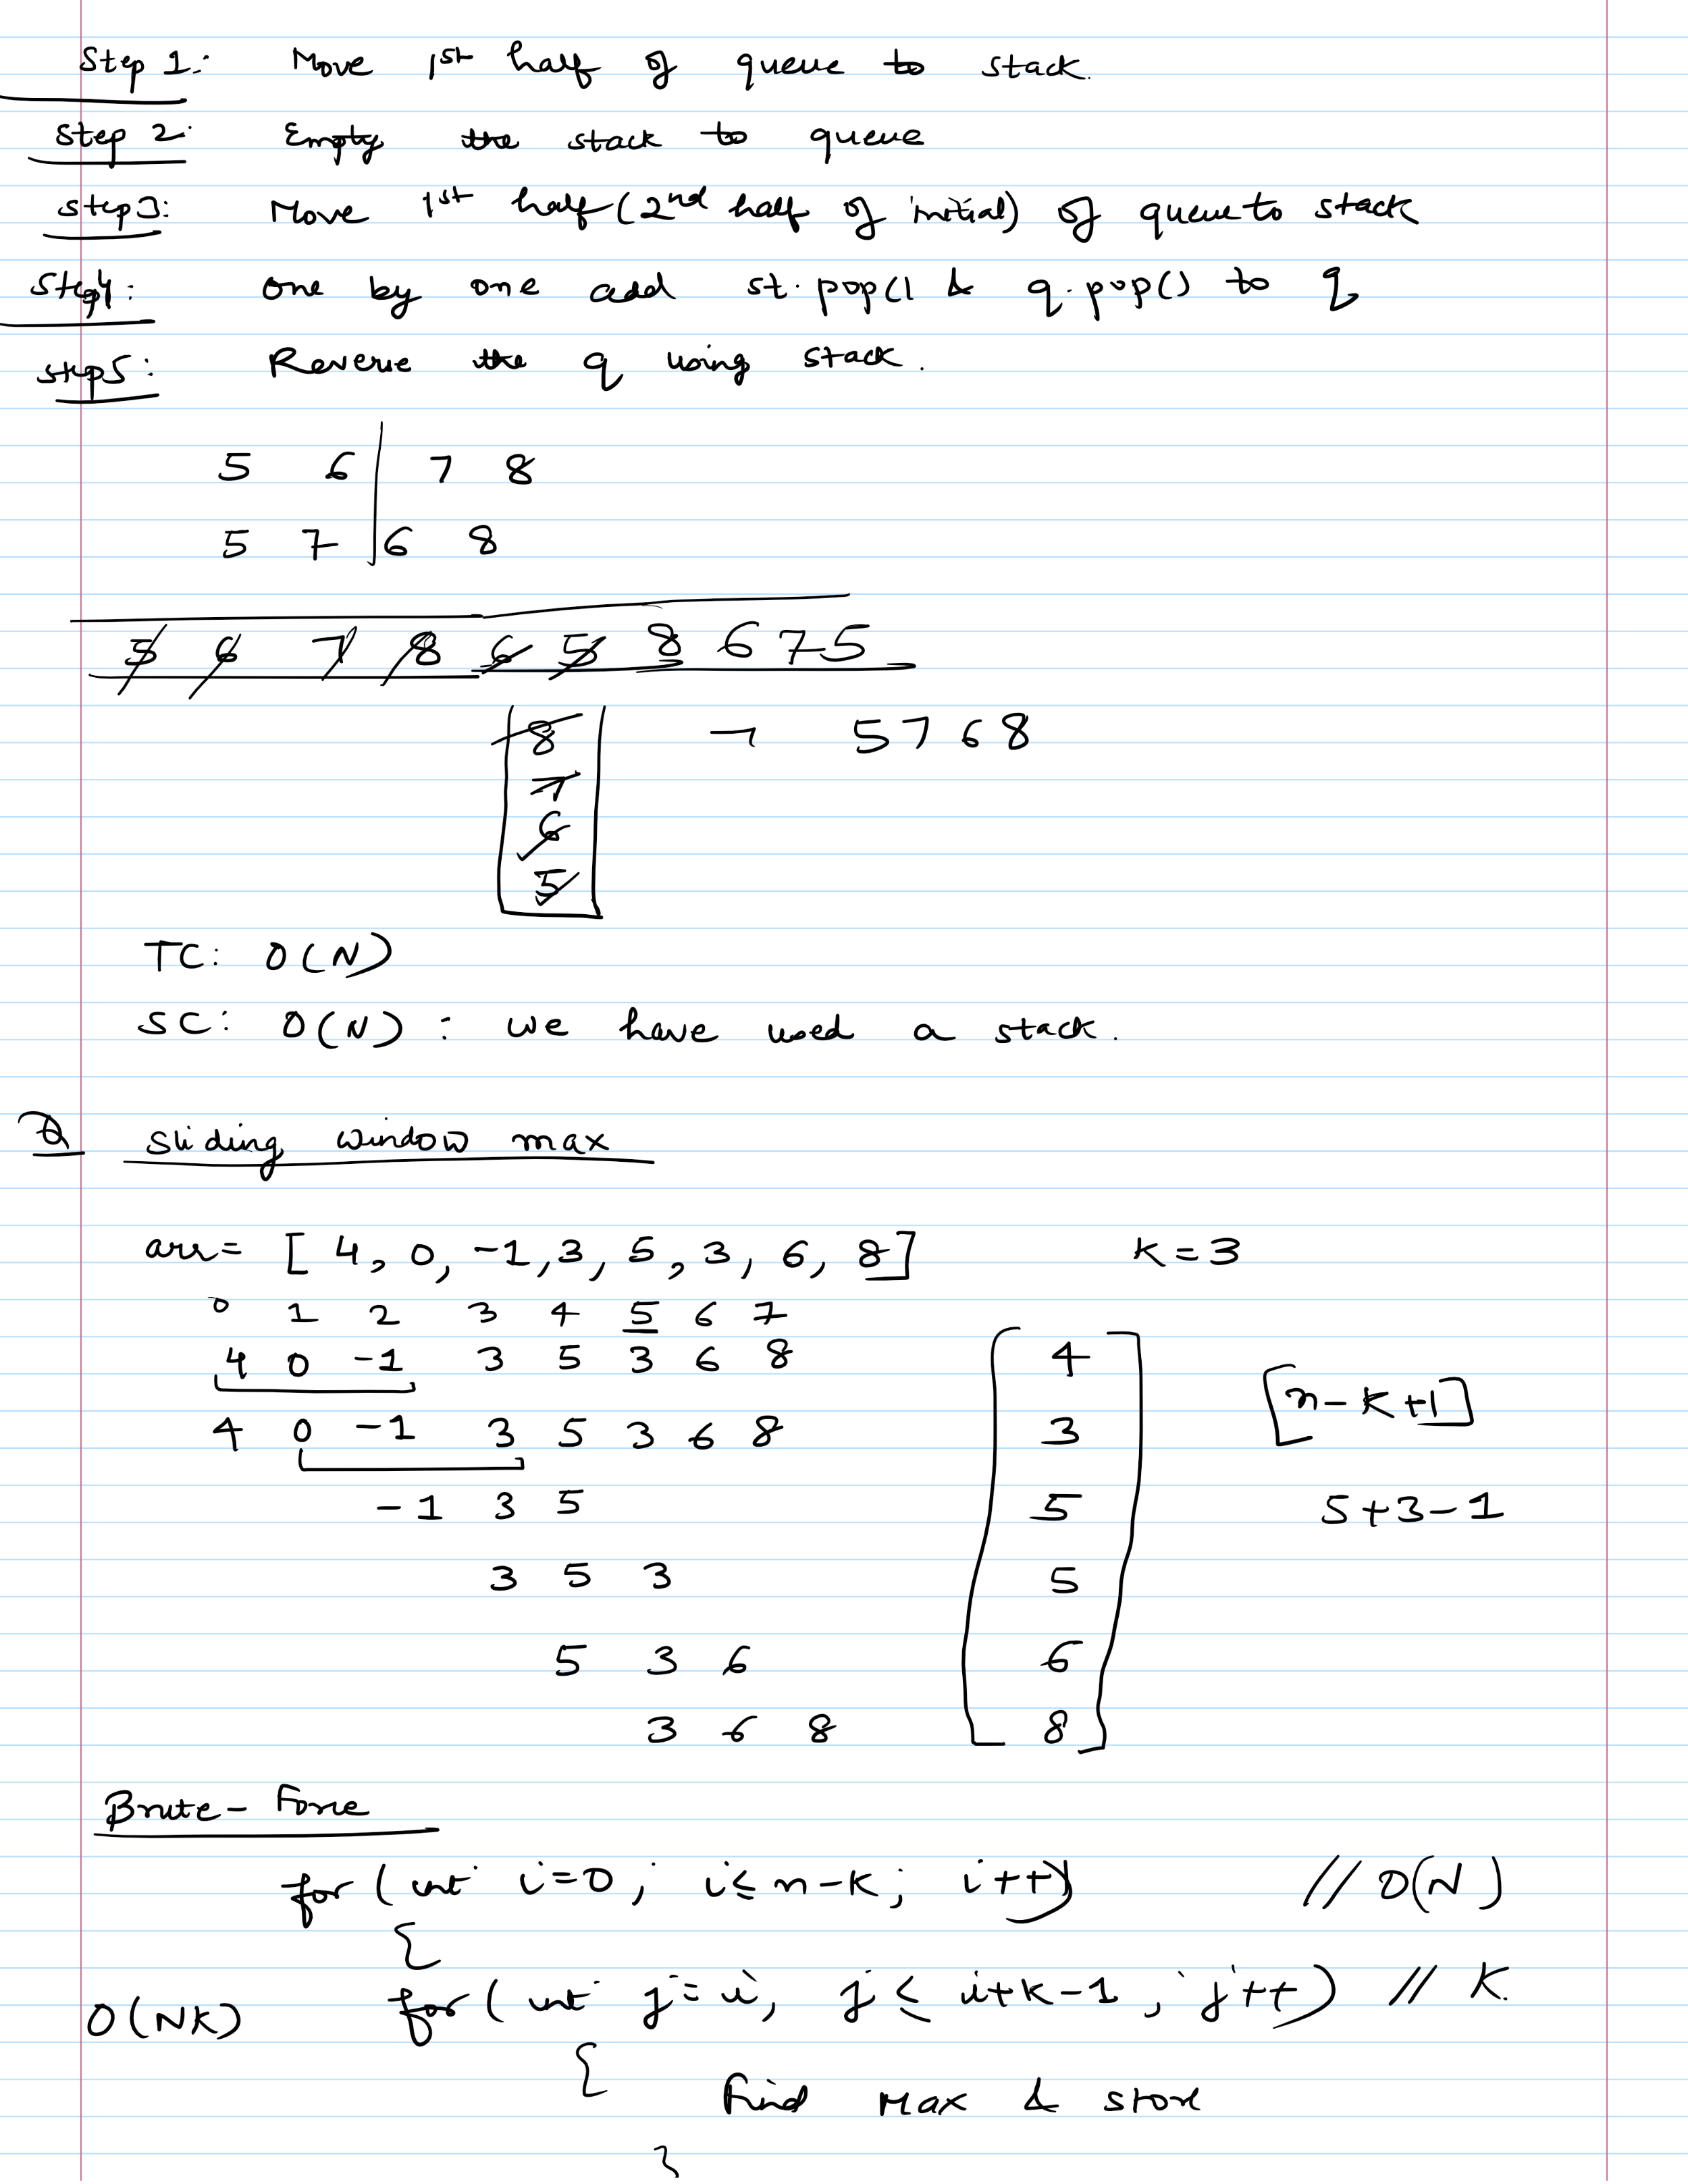 Step 1: Move 1st half of queue to stack.
Step 2: Empty the stack to queue
Step3: Move 1st half (2nd half of initial) of queue to stack
Step4: One by one add st.pop() & q.pop() to q
Step5: Reverse the q using stack.
5 6 | 7 8
5 7 | 6 8
5 6 7 8 6 5 8 6 7 5
8 → 5 7 6 8
7
6
5
TC: O(N)
SC: O(N) : we have used a stack.
Q Sliding window max
arr = [ 4, 0, -1, 3, 5, 3, 6, 8] K = 3
0 1 2 3 4 5 6 7
4 0 -1 3 5 3 6 8 4
[n-K+1]
4 0 -1 3 5 3 6 8 3
-1 3 5 5 5+3-1
3 5 3 5
5 3 6 6
3 6 8 8
Brute-Force
for (int i=0; i≤n-K; i++) // O(N)
{
O(NK) for (int j=i; j ≤ i+k-1; j++) // K.
{
Find Max & store
}